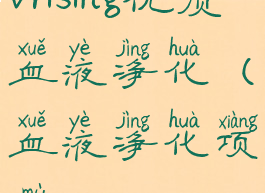 xuě yè jìng huà
血液净化（
xuě yè jìng huà xiàng
血液净化项
mù